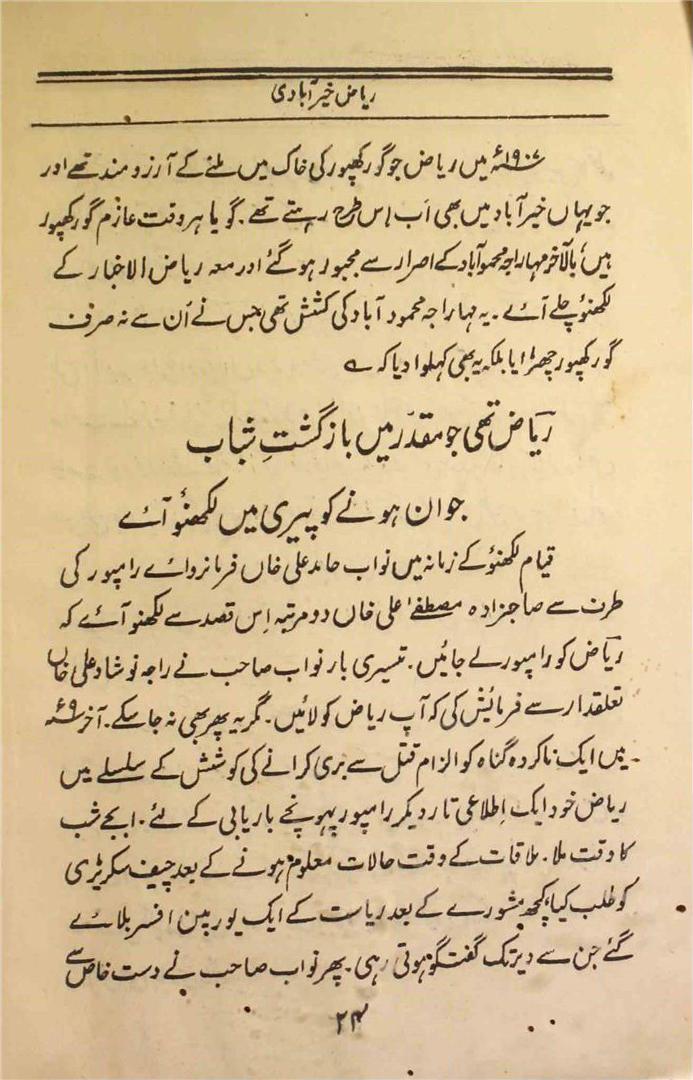 ریاض خیرآبادی
۱۹۰۷ء میں ریاض جو گورکھپور کی خاک میں ملنے کے آرزو مند تھے اور
جو یہاں خیرآباد میں بھی اَب اِس طرح رہتے تھے۔ گویا ہر وقت عازم گورکھپور
ہیں، بالآخر مہاراجہ محمودآباد کے اصرار سے مجبور ہو گئے اور معہ ریاض الاخبار کے
لکھنؤ چلے آئے۔ یہ مہاراجہ محمود آباد کی کشش تھی جس نے اُن سے نہ صرف
گورکھپور چھڑایا بلکہ یہ بھی کہلوا دیا کہ ؎
ریاؔض تھی جو مقدّر میں بازگشتِ شباب
جوان ہونے کو پیری میں لکھنؤ آئے
قیام لکھنؤ کے زمانہ میں نواب حامد علی خاں فرمانروائے رامپور کی
طرف سے صاحبزادہ مصطفےٰ علی خاں دو مرتبہ اِس قصد سے لکھنؤ آئے کہ
ریاؔض کو رامپور لے جائیں۔ تیسری بار نواب صاحب نے راجہ نوشاد علی خاں
تعلقدار سے فرمائش کی کہ آپ ریاض کو لائیں۔ مگر یہ پھر بھی نہ جا سکے۔ آخر ۰۹ء
میں ایک ناکردہ گناہ کو الزام قتل سے بری کرانے کی کوشش کے سلسلے میں
ریاض خود ایک اِطلاعی تار دیکر رامپور پہونچے باریابی کے لئے۔ ۱بجے شب
کا وقت ملا۔ ملاقات کے وقت حالات معلوم ہونے کے بعد چیف سکریٹری
کو طلب کیا، کچھ مشورے کے بعد ریاست کے ایک یورپین افسر بلائے
گئے جن سے دیر تک گفتگو ہوتی رہی۔ پھر نواب صاحب نے دست خاص سے
۲۴